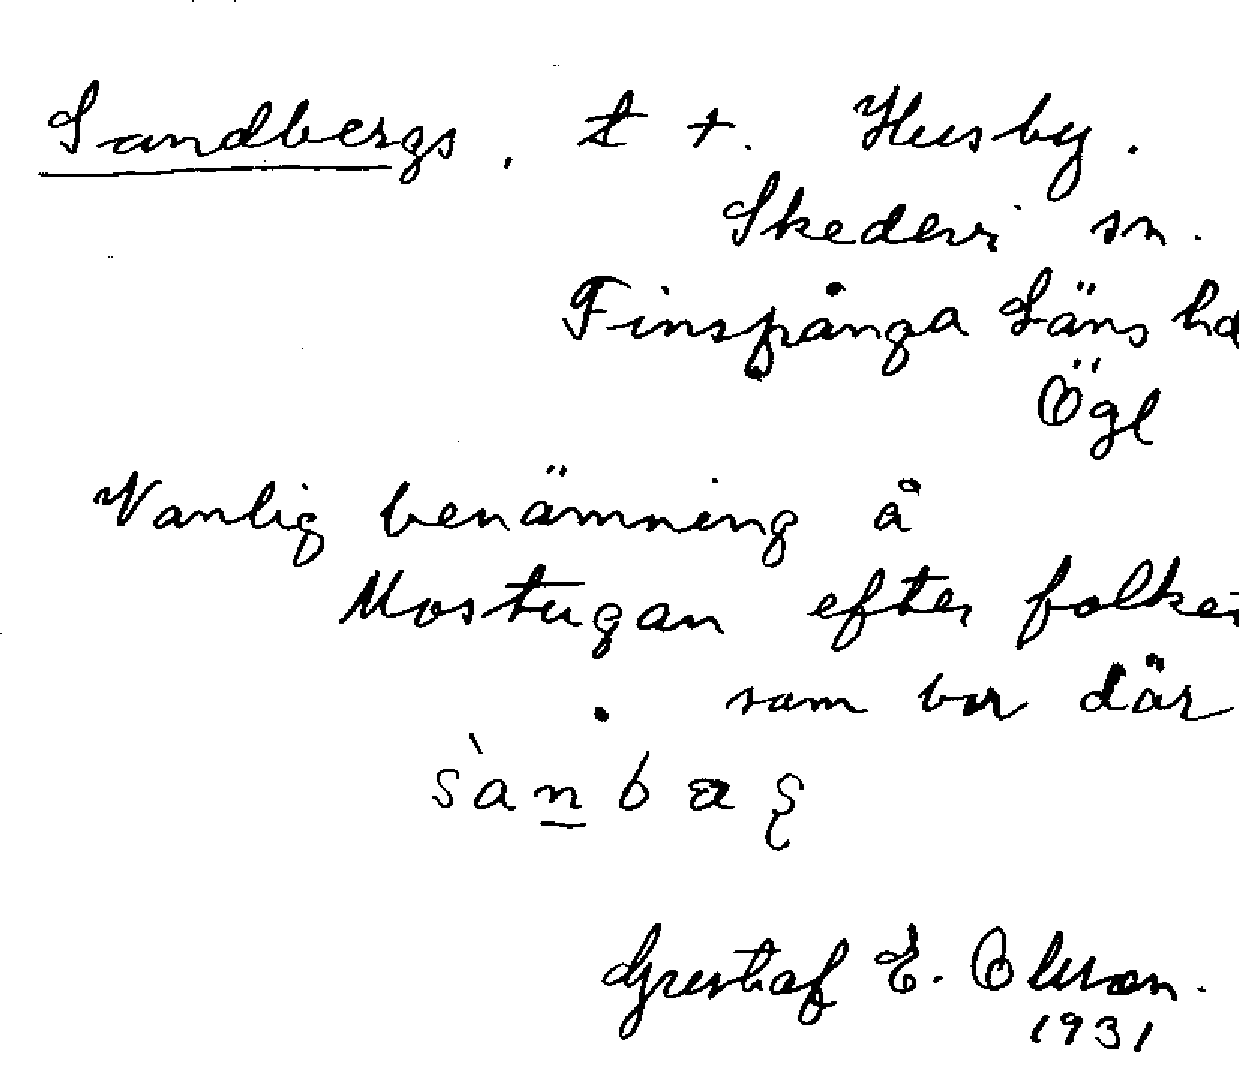 Sandbergs, t t. Husby.
Skedevi sn.
Finspånga Läns hd
Ögl
Vanlig benämning å
Mostugan efter folket
som bor där
Gustaf E. Olsson.
1931